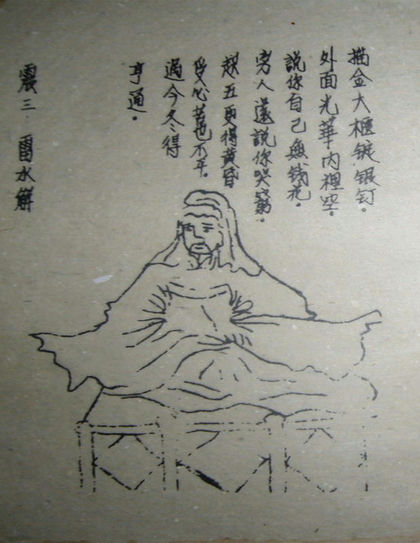 描金大櫃錠銀釘。
外面光華內裡空。
說你自己無錢花。
旁人還說你哭窮。
越五更得黃昏
受心苦也不平。
過今冬得
亨通。
震三 雷水解